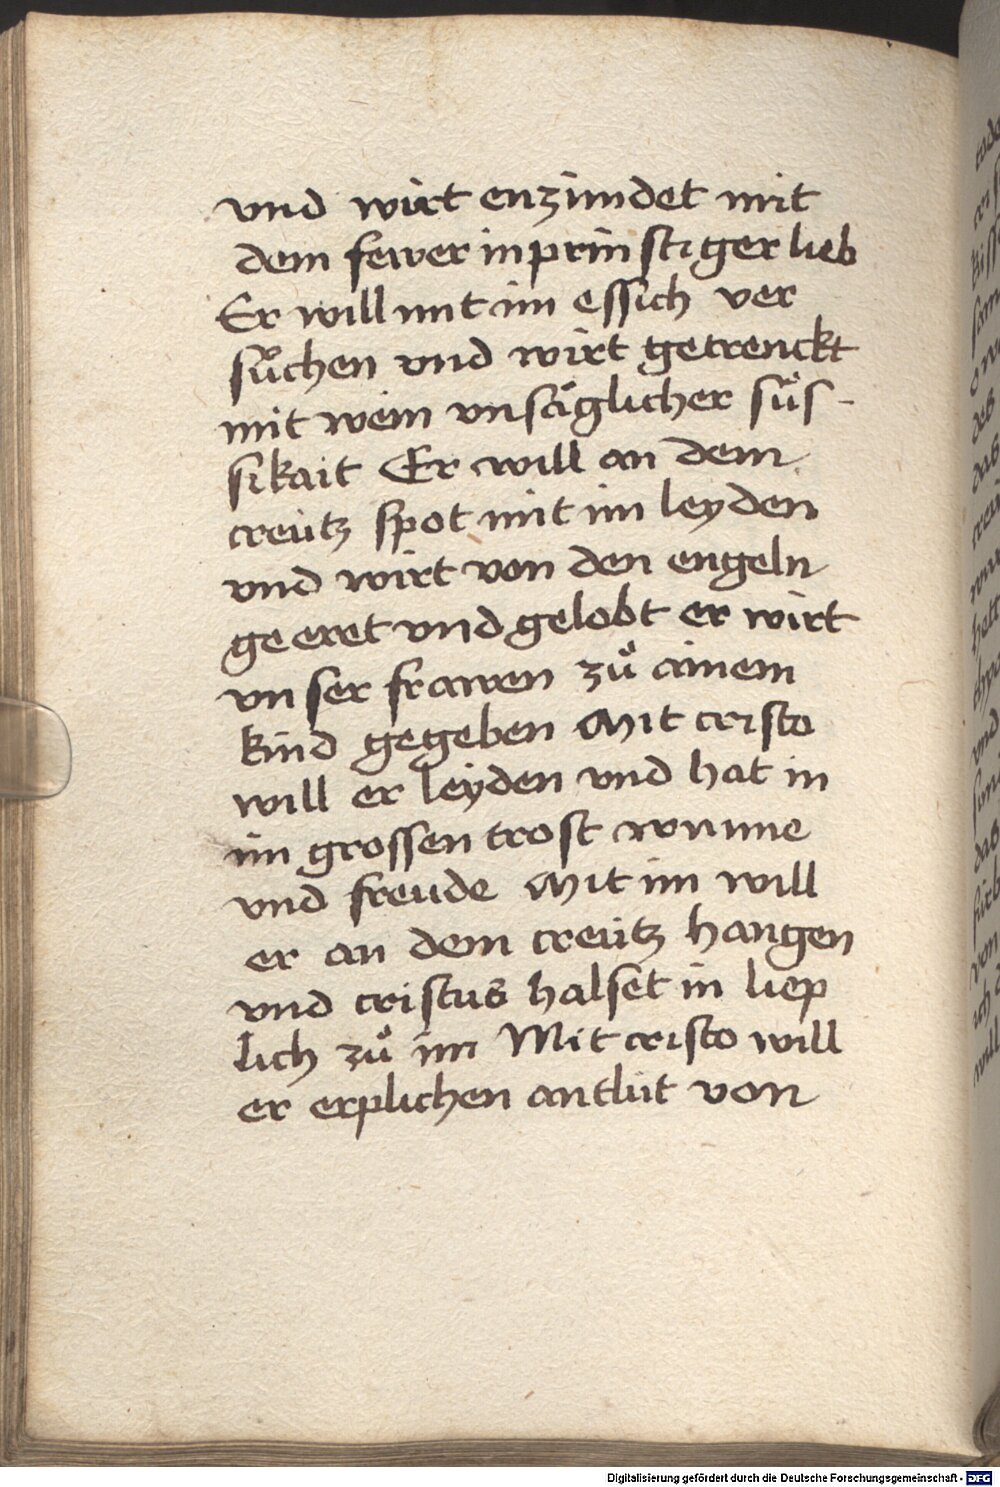 vnd wirt enzündet mit
dem fewer inprinstiger lieb
Er will mit im essich ver
sůchen vnd wirt getrenckt
mit wein vnsäglicher süs-
sikait Er will an dem
creütz spot mit im leyden
vnd wirt von den engeln
geeret vnd gelobt er wirt
vnser frawen zů ainem
kind gegeben Mit cristo
will er leyden vnd hat in
im grossen trost wunne
vnd freude Mit im will
er an dem creütz hangen
vnd cristus halset in liep
lich zů im Mit cristo will
er erplichen antlüt von
Digitalisierung gefördert durch die Deutsche Forschungsgemeinschaft - DFG